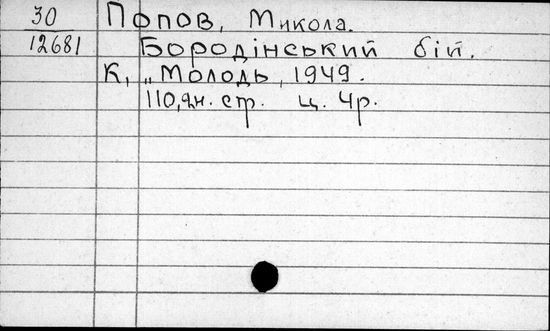 30 Попов, Микола.
12681 Бородінський бій.
К, „Молодь, 1949.
110, 2н. стр. ц. 4р.